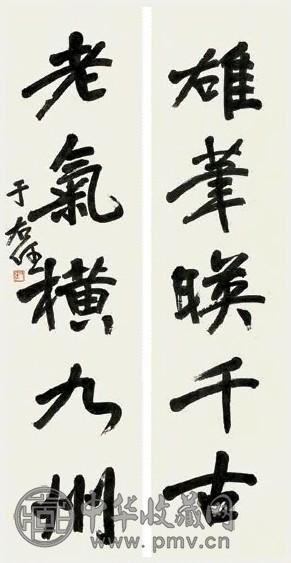 雄筆映千古
老氣橫九州
于右任
中华收藏网
www.pmv.cn